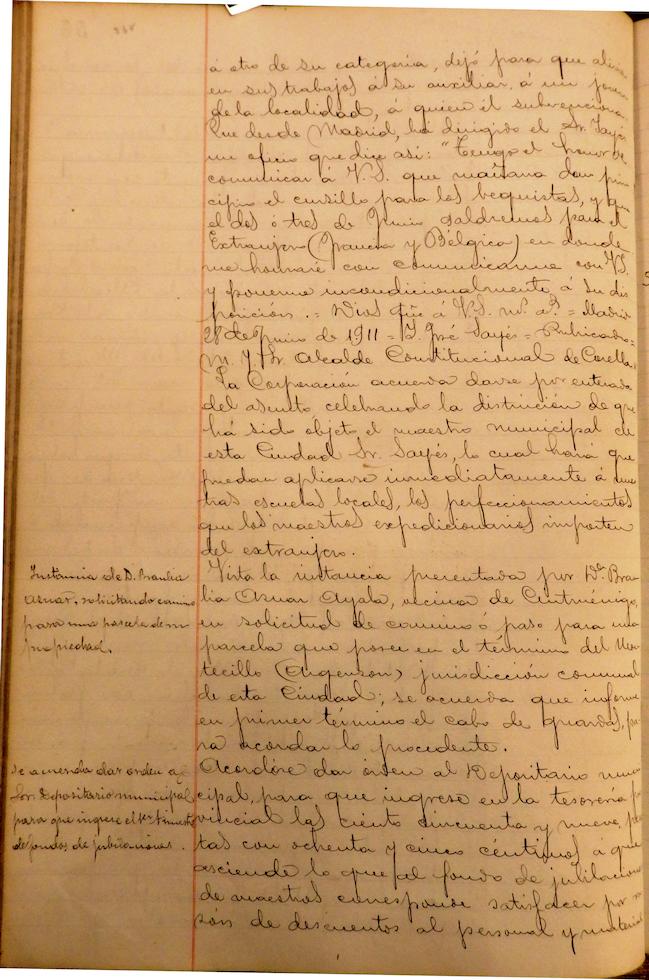 á otro de su categoría, dejó para que
en sus trabajos á su auxiliar, á un joven
de la localidad, á quien él subvenciona.
Que desde Madrid, há dirigido el Sr. Sayés
un oficio que dice así: "Tengo el honor de
comunicar á V.S. que mañana dan prin
cipio el cursillo para los bequistas, y que
el dos ó tres de Junio saldremos para el
Extranjero (Francia y Bélgica) en donde
me honraré con comunicarme con V.S.
y ponerme incondicionalmente á su dis
posición. = Dios gue á V.S. ms. as. = Madrid
28 de de 1911 = José Sayés = Rubricado =
M. Y. Sr. Alcalde Constitucional de Corella.
La Corporación acuerda darse por enterada
del asunto celebrando la distinción de que
há sido objeto el maestro municipal de
esta Ciudad Sr. Sayés, lo cual hará que
puedan aplicarse inmediatamente á nues
tras escuelas locales, los perfeccionamientos
que los maestros expedicionarios importen
del extranjero.
Instancia de Dª. Braulia
Aznar, solicitando camino
para una parcela de su
propiedad.
Vista la instancia presentada por Dª. Brau
lia Aznar Ayala, vecina de Cintruénigo,
en solicitud de camino ó paso para una
parcela que posee en el término del Mon
tecillo (Argenzon) jurisdicción comunal
de esta Ciudad; se acuerda que informe
en primer término el cabo de guardas, pa
ra acordar lo procedente.
Se acuerda dar orden al
Sor. Depositario municipal
para que ingrese el 1er trimestre
de fondos de jubilaciones.
Acordóse dar orden al Depositario muni
cipal, para que ingrese en la tesorería pro
vincial las ciento cincuenta y nueve pese
tas con ochenta y cinco céntimos á que
asciende lo que al fondo de jubilaciones
de maestros corresponde satisfacer por ra
zón de descuentos al personal y material